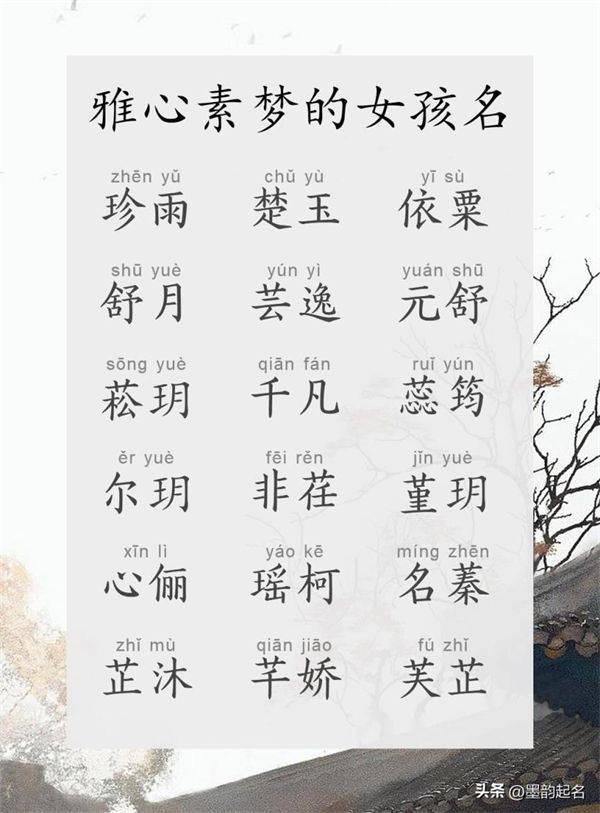 雅心素梦的女孩名
zhēn yǔ chǔ yù yī sù
珍雨 楚玉 依粟
shū yuè yún yì yuán shū
舒月 芸逸 元舒
sōng yuè qiān fán ruǐ yún
菘玥 千凡 蕊筠
ěr yuè fēi rěn jǐn yuè
尔玥 非荏 堇玥
xīn lì yáo kē míng zhēn
心俪 瑶柯 名蓁
zhǐ mù qiān jiāo fú zhǐ
芷沐 芊娇 芙芷
头条 @墨韵起名